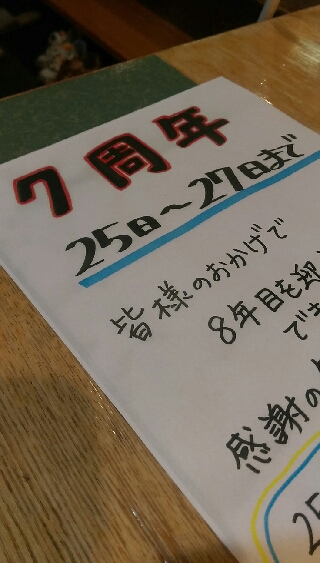 7周年
25日〜27日まで
皆様のおかげで
8年目を迎
でき
感謝の
25